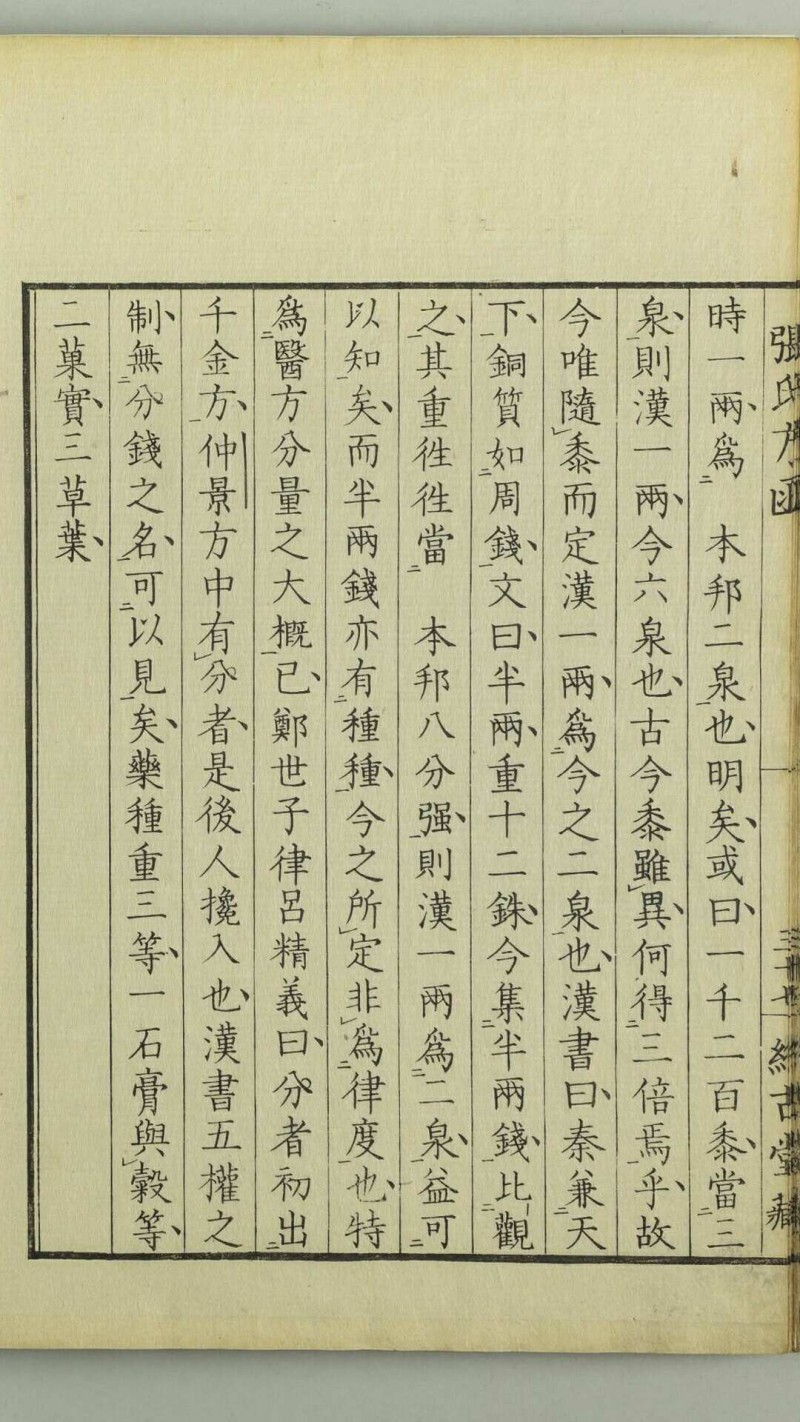 張氏方函
三十七
緑古堂藏
時一兩、爲二 本邦二泉一也、明矣、或曰、一千二百黍、當二三
泉一、則漢一兩、今六泉也、古今黍雖レ異、何得二三倍焉一乎、故
今唯隨レ黍而定漢一兩、爲二今之二泉一也、漢書曰、秦兼二天
下一、銅質如二周錢一、文曰、半兩、重十二銖、今集二半兩錢一、比二-觀
之一、其重徃徃當二 本邦八分强一、則漢一兩爲二二泉一、益可二
以知一矣、而半兩錢亦有二種種一、今之所レ定非レ爲二律度一也、特
爲二醫方分量之大概一已、鄭世子律呂精義曰、分者初出二
千金方一、仲景方中有レ分者、是後人攙入也、漢書五權之
制、無二分錢之名一、可二以見一矣、藥種重三等、一石膏與レ穀等、
二菓實、三草葉、